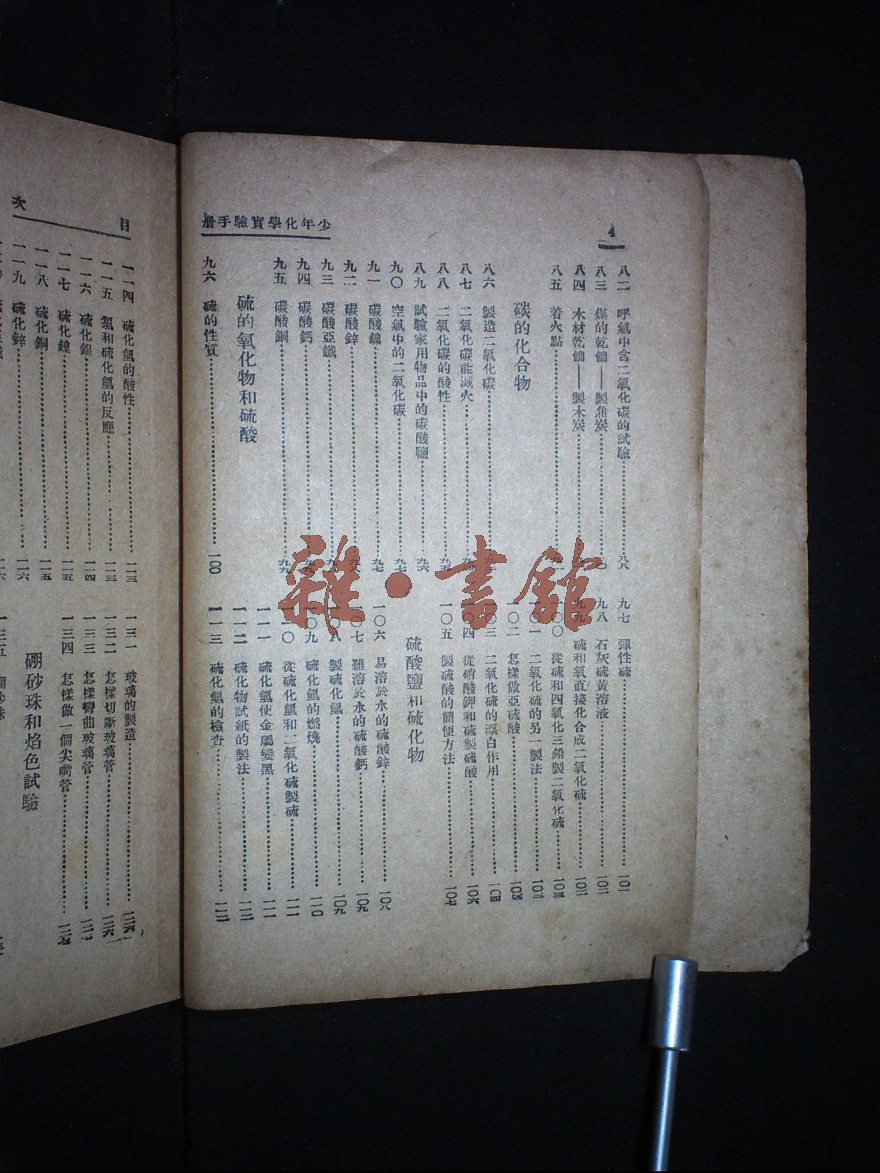 少年化學實驗手册
4
八二 呼氣中含二氧化碳的試驗 八八
八三 煤的乾餾——製焦炭
八四 木材乾餾——製木炭
八五 着火點
碳的化合物
八六 製造二氧化碳
八七 二氧化碳能滅火
八八 二氧化碳的酸性
八九 試驗家用物品中的碳酸鹽 九六
九〇 空氣中的二氧化碳
九一 碳酸鎳 九七
九二 碳酸鋅
九三 碳酸亞鐵
九四 碳酸鈣
九五 碳酸銅
硫的氧化物和硫酸
九六 硫的性質 一〇〇
九七 彈性硫 一〇一
九八 石灰硫黃溶液 一〇二
九九 硫和氧直接化合成二氧化硫 一〇二
一〇〇 從硫和四氧化三鉛製二氧化硫 一〇三
一〇一 二氧化硫的另一製法 一〇三
一〇二 怎樣做亞硫酸 一〇四
一〇三 二氧化硫的漂白作用 一〇四
一〇四 從硝酸鉀和硫製硫酸 一〇六
一〇五 製硫酸的簡便方法 一〇七
硫酸鹽和硫化物
一〇六 易溶於水的硫酸鋅 一〇八
一〇七 難溶於水的硫酸鈣 一〇九
一〇八 製硫化氫 一〇九
一〇九 硫化氫的燃燒 一一〇
一一〇 從硫化氫和二氧化硫製硫 一一一
一一一 硫化氫使金屬變黑 一一一
一一二 硫化物試紙的製法 一一二
一一三 硫化氫的檢查 一一二
目次
一一四 硫化氫的酸性 一一三
一一五 氯和硫化氫的反應 一一三
一一六 硫化銀 一一四
一一七 硫化鎳 一一五
一一八 硫化銅 一一五
一一九 硫化鋅 一一六
一三一 玻璃的製造 一二六
一三二 怎樣切斷玻璃管 一二六
一三三 怎樣彎曲玻璃管 一二七
一三四 怎樣做一個尖嘴管 一二七
硼砂珠和焰色試驗
一三五 硼砂珠
雜·書館